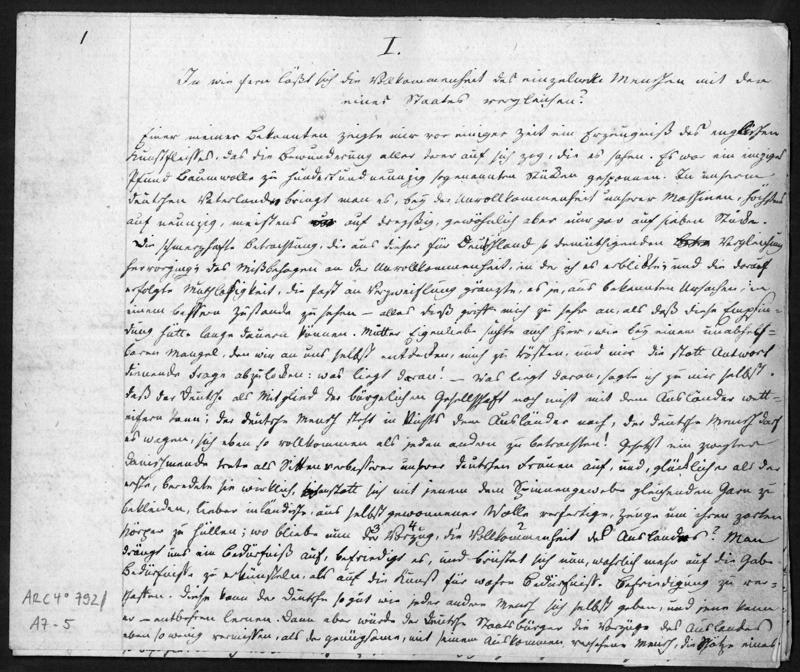 1
I.
In wie fern läßt sich die Vollkommenheit des einzelnen Menschen mit der
eines Staates vergleichen?
Einer meiner Bekannten zeigte mir vor einiger Zeit ein Erzeugniß des englischen
Kunstfleißes, das die Bewunderung aller derer auf sich zog, die es sahen. Es war ein einziges
Pfund Baumwolle zu hundert und neunzig sogenannten Stücken gesponnen. In unserm
deutschen Vaterlande bringt man es, bey der Unvollkommenheit unserer Maschinen, höchstens
auf neunzig, meistens auf dreyßig, gewöhnlich aber nur gar auf sieben Stücke.
Die schmerzhafte Betrachtung, die aus dieser für Deutschland so demüthigenden Vergleichung
hervorging; das Mißbehagen an der Unvollkommenheit, in der ich es erblickte; und die darauf
erfolgte Muthlosigkeit, die fast an Verzweiflung gränzte, es je, aus bekannten Ursachen, in
einem bessern Zustande zu sehen – alles dieß griff mich zu sehr an, als daß diese Empfin-
dung hätte lange dauern können. Mutter Eigenliebe suchte auch hier, wie bey einem unabhelf-
baren Mangel, den wir an uns selbst entdecken, mich zu trösten, und mir die statt Antwort
dienende Frage abzulocken: was liegt daran! – Was liegt daran, sagte ich zu mir selbst,
daß der Deutsche als Mitglied der bürgerlichen Gesellschaft noch nicht mit dem Ausländer wett-
eifern kann; der deutsche Mensch steht in Nichts dem Ausländer nach, der deutsche Mensch darf
es wagen, sich eben so vollkommen als jeden andern zu betrachten! Gesetzt ein zweyter
Danischmende trete als Sittenverbesserer unserer deutschen Frauen auf, und, glücklicher als der
erste, beredete sie wirklich, anstatt sich mit jenem dem Spinnengewebe gleichenden Garn zu
bekleiden, lieber inländische, aus selbstgewonnener Wolle verfertigte, Zeuge um ihren zarten
Körper zu hüllen; wo bliebe nun der Vorzug, die Vollkommenheit des Auslandes? Man
drängt uns ein Bedürfniß auf, befriedigt es, und brüstet sich nun, wahrlich mehr auf die Gabe
Bedürfnisse zu erkünsteln, als auf die Kunst für wahre Bedürfnisse Befriedigung zu ver-
schaffen. Diese kann der Deutsche so gut wie jeder andere Mensch sich selbst geben, und jene kann
er – entbehren lernen. Dann aber würde der deutsche Staatsbürger die Vorzüge des Auslandes
eben so wenig vermissen, als der genügsame, mit seinem Auskommen versehene Mensch, die Schätze eines
ARC 4° 792/
A7-5